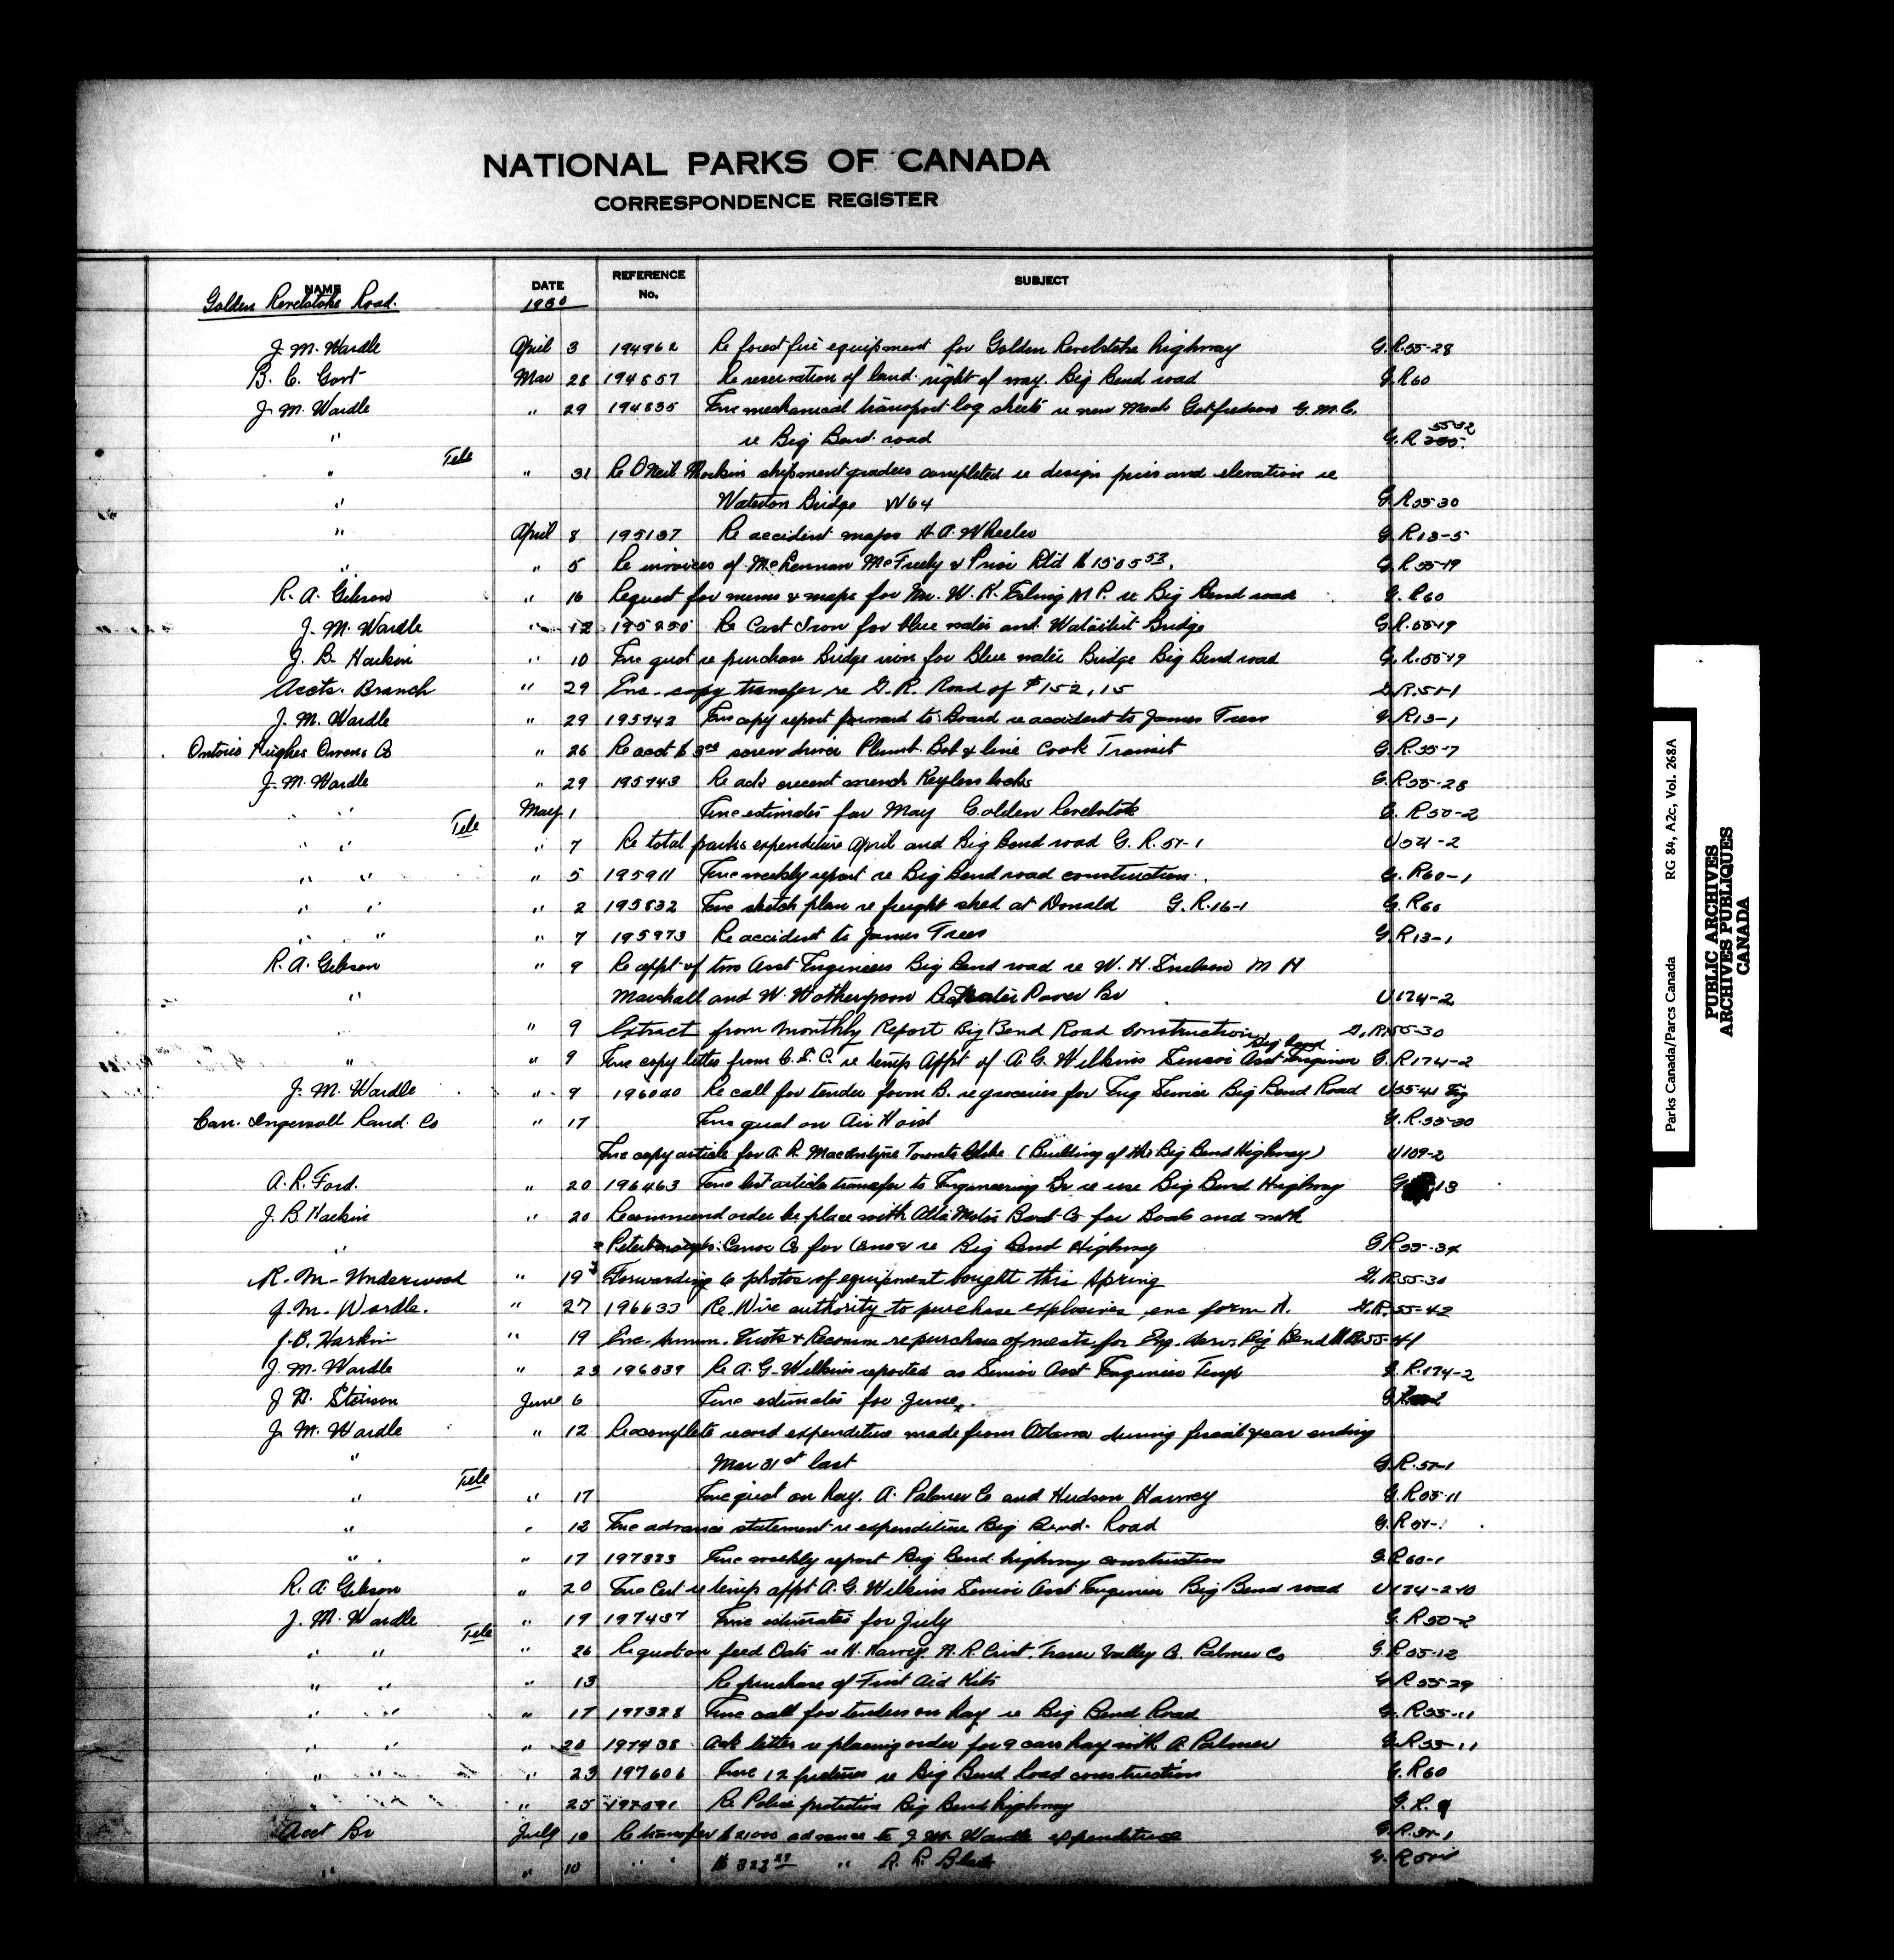 NATIONAL PARKS OF CANADA
CORRESPONDENCE REGISTER
NAME DATE REFERENCE No. SUBJECT
Golden Revelstoke Road. 1930
J. M. Wardle April 3 194962 Re forest fire equipment for Golden Revelstoke highway G.R.55-28
B. C. Govt Mar 28 194857 Re reservation of land right of way. Big Bend road G.R60
J. M. Wardle " 29 194835 Enc mechanical transport log sheets re new Macks Gotfredson G.M.C.
" re Big Bend road G.R 55-32
Tele
" " 31 Re O'Neil Morkin shipment graders completed re design piers and elevation re
" Waterton Bridge W64 G.R55-30
" April 8 195137 Re accident H.A. Wheeler G.R13-5
" " 5 Re invoices of McLennan McFeely & Prior Ltd $1505 53. G.R55-19
R. A. Gibson " 16 Request for memo & maps for Mr. W. K. Esling M P. re Big Bend road G.R60
J. M. Wardle " 12 195250 Re Cast Iron for blue water and Bridge G.R.55-19
J. B. Harkin " 10 Enc quot re purchase Bridge iron for Blue water Bridge Big Bend road G.R.55-19
Accts. Branch " 29 Enc. copy transfer re G.R. Road of $152.15 G.R.51-1
J. M. Wardle " 29 195742 Enc copy report forward to Board re accident to James Trees G.R13-1
Ontario Hughes Owens Co " 26 Re acct screw driver Plumb. Bob & line Cook Transit G.R.55-7
J. M. Wardle " 29 195743 Re crescent wrench Keyless locks G.R55-28
" " May 1 Enc estimates for May Golden Revelstoke G.R50-2
Tele
" " " 7 Re total parks expenditure April and Big Bend road G.R.51-1 U51-2
" " " 5 195911 Enc weekly report re Big Bend road construction. G.R60-1
" " " 2 195832 Enc sketch plan re freight shed at Donald G.R.16-1 G.R60
" " " 7 195973 Re accident to James Trees G.R13-1
R. A. Gibson " 9 Re appt of two Asst Engineers Big Bend road re W. H. Snelson M H
" Marshall and W. Wotherspoon Water Power Br U174-2
" " 9 Extract from Monthly Report Big Bend Road Construction. G.R.55-30
Big Bend
" " 9 Enc copy letter from C.S.C. re temp Appt of A.G. Wilkins Senior Asst Engineer G.R174-2
J. M. Wardle " 9 196040 Re call for tender form B. re groceries for Eng Service Big Bend Road U55-41 Eng
Can. Ingersoll Rand. Co " 17 Enc quot on Air Hoist G.R.55-30
Enc copy article for A.R. MacIntyre Toronto Globe (Building of the Big Bend Highway) U109-2
A. R. Ford. " 20 196463 Enc list article transfer to Engineering Br re use Big Bend Highway G 13
J. B. Harkin " 20 Recommend order be place with Alta Motor Boat Co for Boats and with
" Peterborough Canoe Co for Canoes re Big Bend Highway G.R55-34
R. M. Underwood " 19 Forwarding 6 photos of equipment bought this Spring G.R55-30
J. M. Wardle. " 27 196633 Re. Wire authority to purchase explosives, enc form A. G.R.55-42
J. B. Harkin " 19 Enc. Summ. Quots & Recomm. re purchase of meats for Eng. Serv. Big Bend G.R.55-41
J. M. Wardle " 23 196539 Re A. G. Wilkins reported as Senior Asst Engineer Temp G.R.174-2
J. D. Stenson June 6 Enc estimates for June.
J. M. Wardle " 12 Re complete record expenditure made from Ottawa during fiscal year ending
" Mar 31st last G.R.51-1
Tele
" " 17 Enc quot on hay. A. Palmer Co and Hudson Harvey G.R55-11
" " 12 Enc advance statement re expenditure Big Bend. Road G.R51-1
" " 17 197323 Enc weekly report Big Bend highway construction G.R60-1
R. A. Gibson " 20 Enc Cert re temp appt A. G. Wilkins Senior Asst Engineer Big Bend road U174-2-10
J. M. Wardle " 19 197437 Enc estimates for July G.R50-2
Tele
" " " 26 Re quot on feed Oats re H. Harvey. Fraser Valley A. Palmer Co G.R55-12
" " " 13 Re purchase of First Aid Kits G.R55-29
" " " 17 197328 Enc call for tenders on hay re Big Bend Road G.R55-11
" " " 20 197438 Ack letter re placing order for 9 cars hay with A. Palmer G.R55-11
" " " 23 197606 Enc 12 pictures re Big Bend road construction G.R60
" " 25 Re Police protection Big Bend highway G.R. 9
Acct Br July 10 Re transfer $21000 advance to J. M. Wardle expenditure G.R.51-1
" " 10 " " $323 27 " R. R. G.R
Parks Canada/Parcs Canada RG 84, A2c, Vol. 268A
PUBLIC ARCHIVES
ARCHIVES PUBLIQUES
CANADA